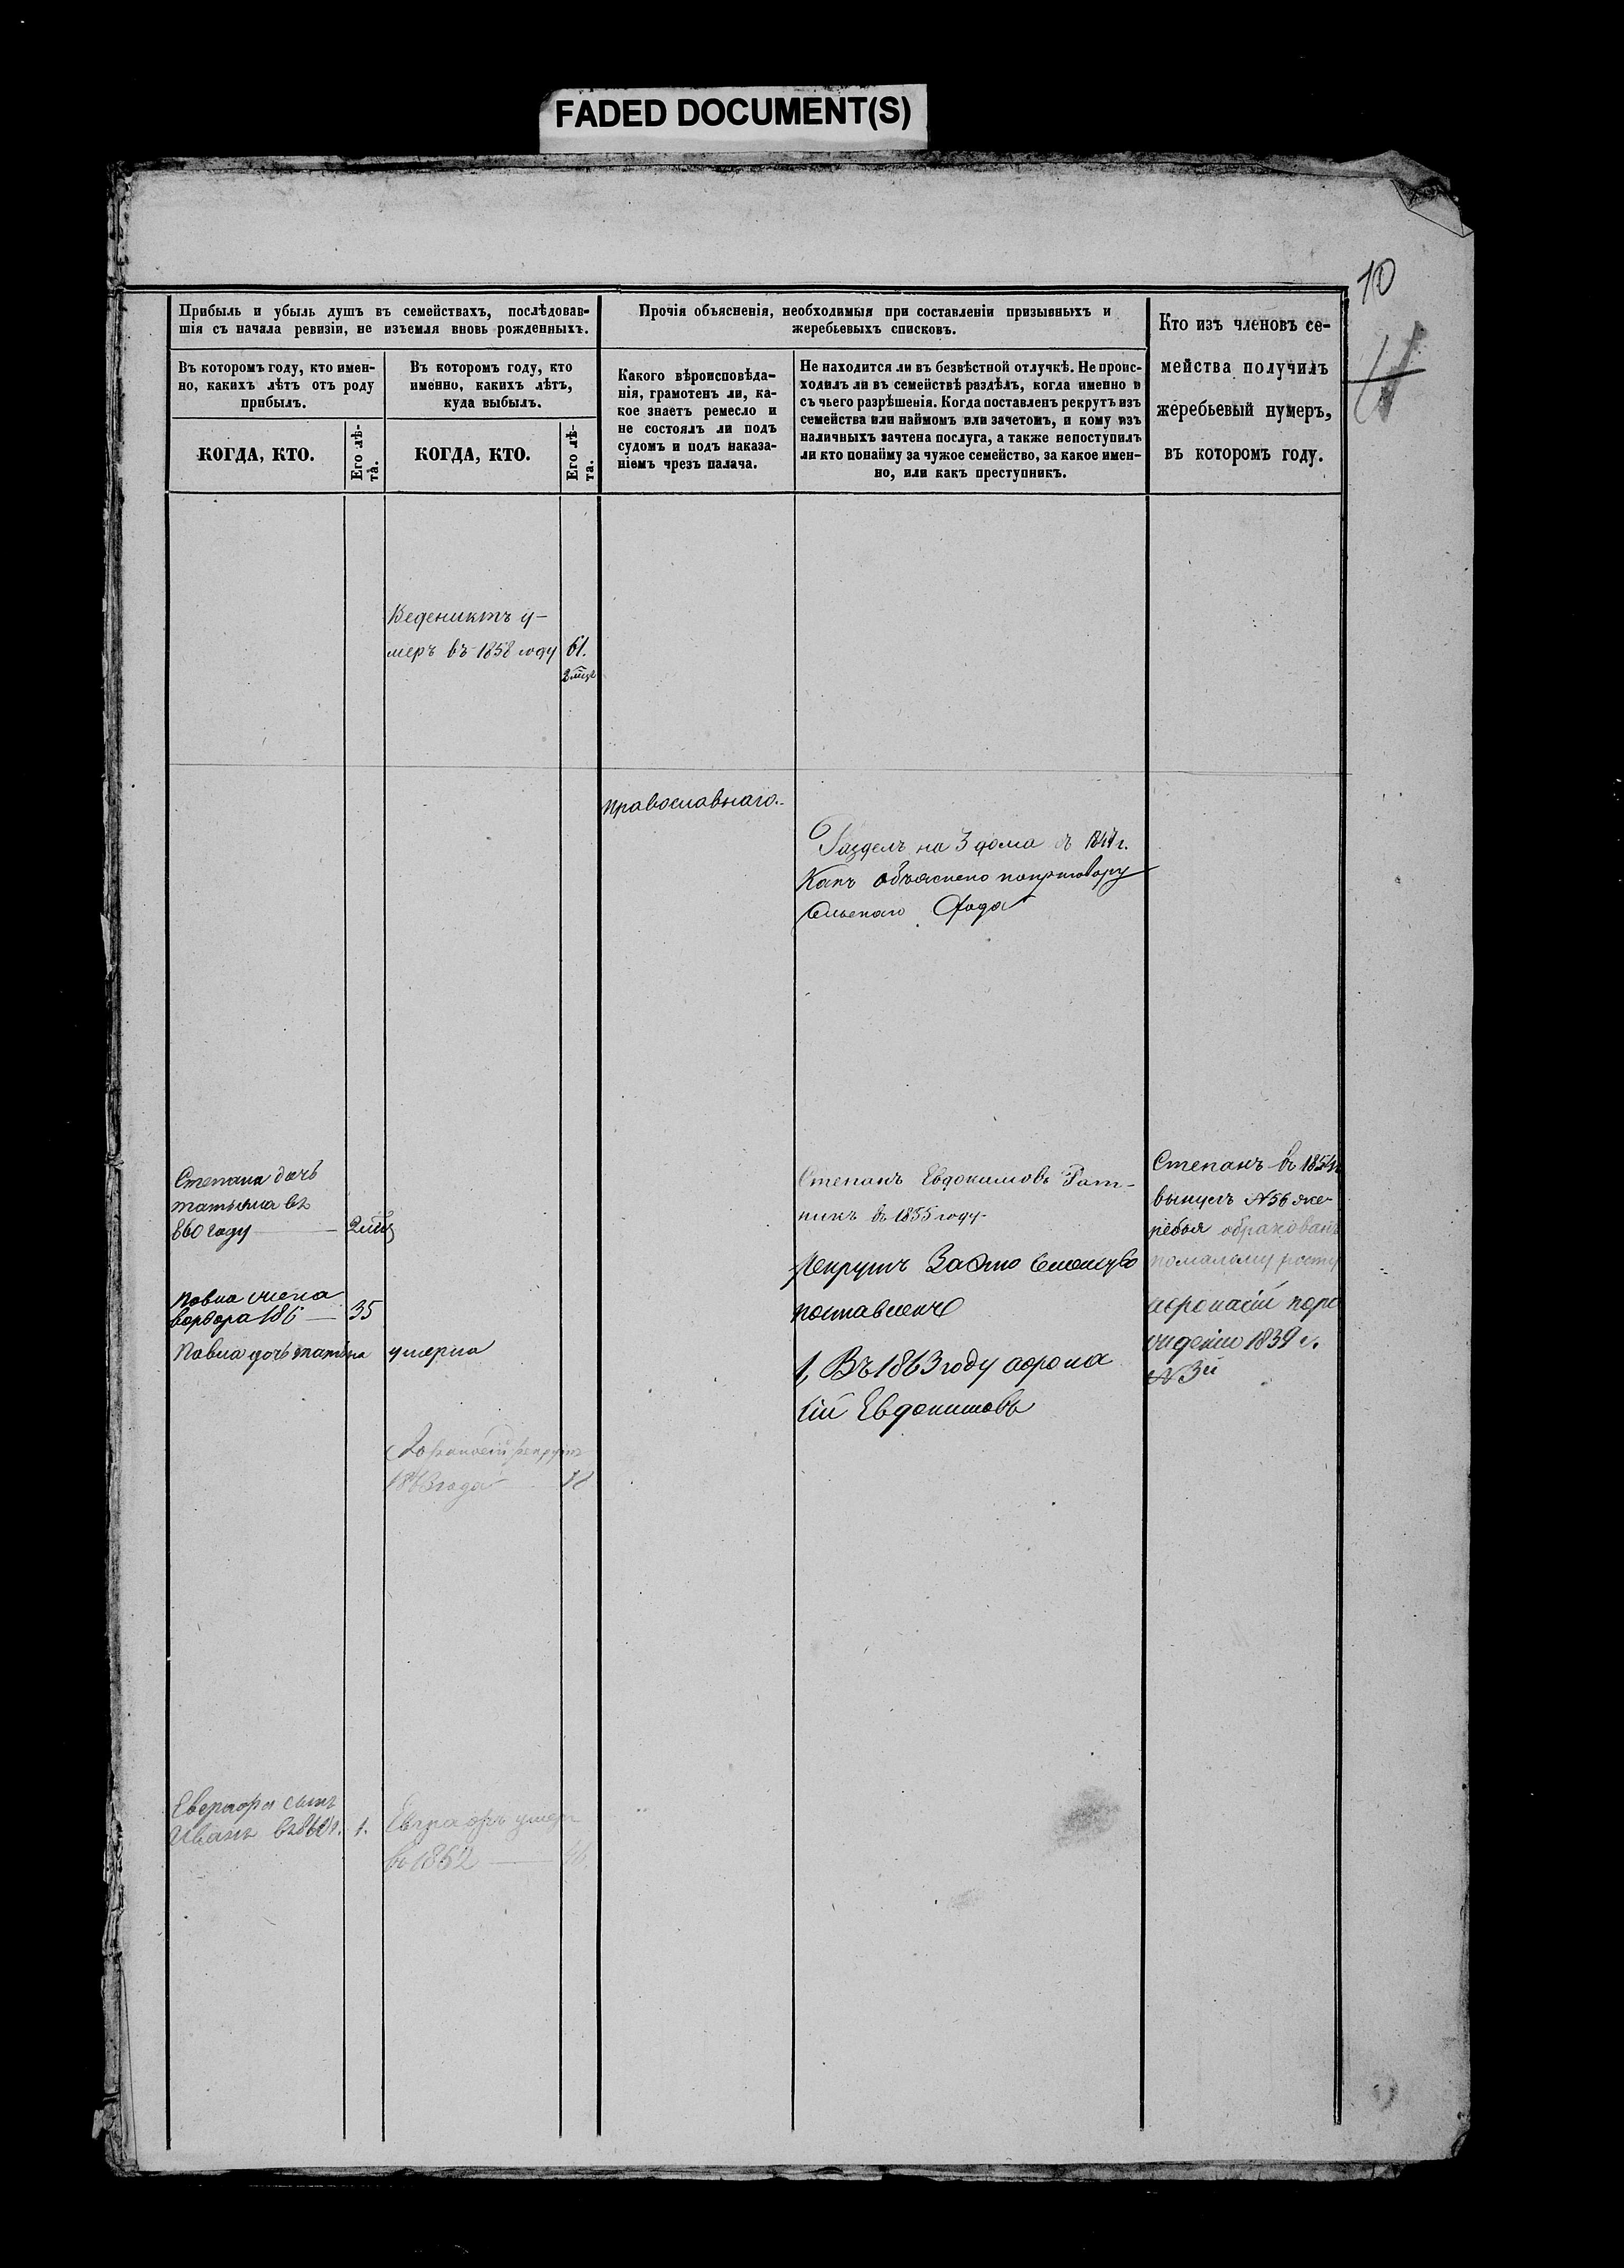 FADED DOCUMENT(S)
10
Прибыль и убыль душъ въ семействахъ, послѣдовав-
шія съ начала ревизіи, не изъемля вновь рожденныхъ.
Прочія объясненія, необходимыя при составленіи призывныхъ и
жеребьевыхъ списковъ.
Кто изъ членовъ се-
мейства получилъ
жеребьевый нумеръ,
въ которомъ году.
Въ которомъ году, кто имен-
но, какихъ лѣтъ отъ роду
прибылъ.
Въ которомъ году, кто
именно, какихъ лѣтъ,
куда выбылъ.
Какого вѣроисповѣда-
нія, грамотенъ ли, ка-
кое знаетъ ремесло и
не состоялъ ли подъ
судомъ и подъ наказа-
ніемъ чрезъ палача.
Не находится ли въ безвѣстной отлучкѣ. Не проис-
ходилъ ли въ семействѣ раздѣлъ, когда именно и
съ чьего разрѣшенія. Когда поставленъ рекрутъ изъ
семейства или наймомъ или зачетомъ, и кому изъ
наличныхъ зачтена послуга, а также непоступилъ
ли кто понайму за чужое семейство, за какое имен-
но, или какъ преступникъ.
КОГДА, КТО.
Его лѣ-
та.
КОГДА, КТО.
Его лѣ-
та.
Веденикть у-
меръ въ 1858 году
61.
православнаго.
Раздѣлъ на 3 дома
Какъ объяснено
Степана дочь
татьяна въ
860 году
Степанъ Евдокимовъ Рат-
никъ въ 1855 году
Рекрутъ За это
поставленъ
1, Въ 1863 году афона
сій Евдокимовъ
Степанъ въ
вынулъ №56 же-
ребья обракованъ
помалому росту
афонасій
1839 г.
№3й
павла жена
варвара 186
35
Павла дочь татьяна умерла
рекрутъ
1863 года
сынъ
Иванъ
1.
умеръ
въ 1862